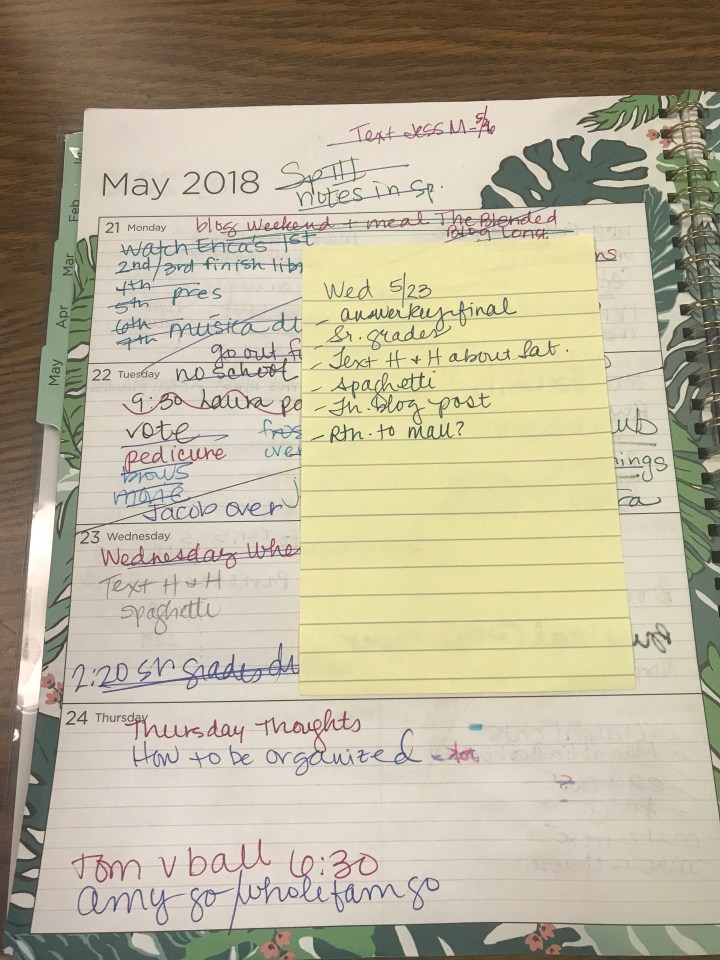 Text Jess M - 5/16
May 2018
notes in Sp.
21 Monday
blog weekend + meal The Blended
Blog Long.
Watch Erica's 1st
2nd/3rd finish
4th
5th pres
6th
7th musica
go out
22 Tuesday no school
9:30 Laura
vote
pedicure
brows
Jacob over
23 Wednesday
Wednesday
Text H + H
spaghetti
2:20 sr grades
Wed 5/23
- answer key final
- Sr. grades
- Text H + H about Sat.
- spaghetti
- Th. blog post
- Rtn. to mall?
24 Thursday
Thursday Thoughts
How to be organized
Tom v ball 6:30
amy go/whole fam go
Feb
Mar
Apr
May